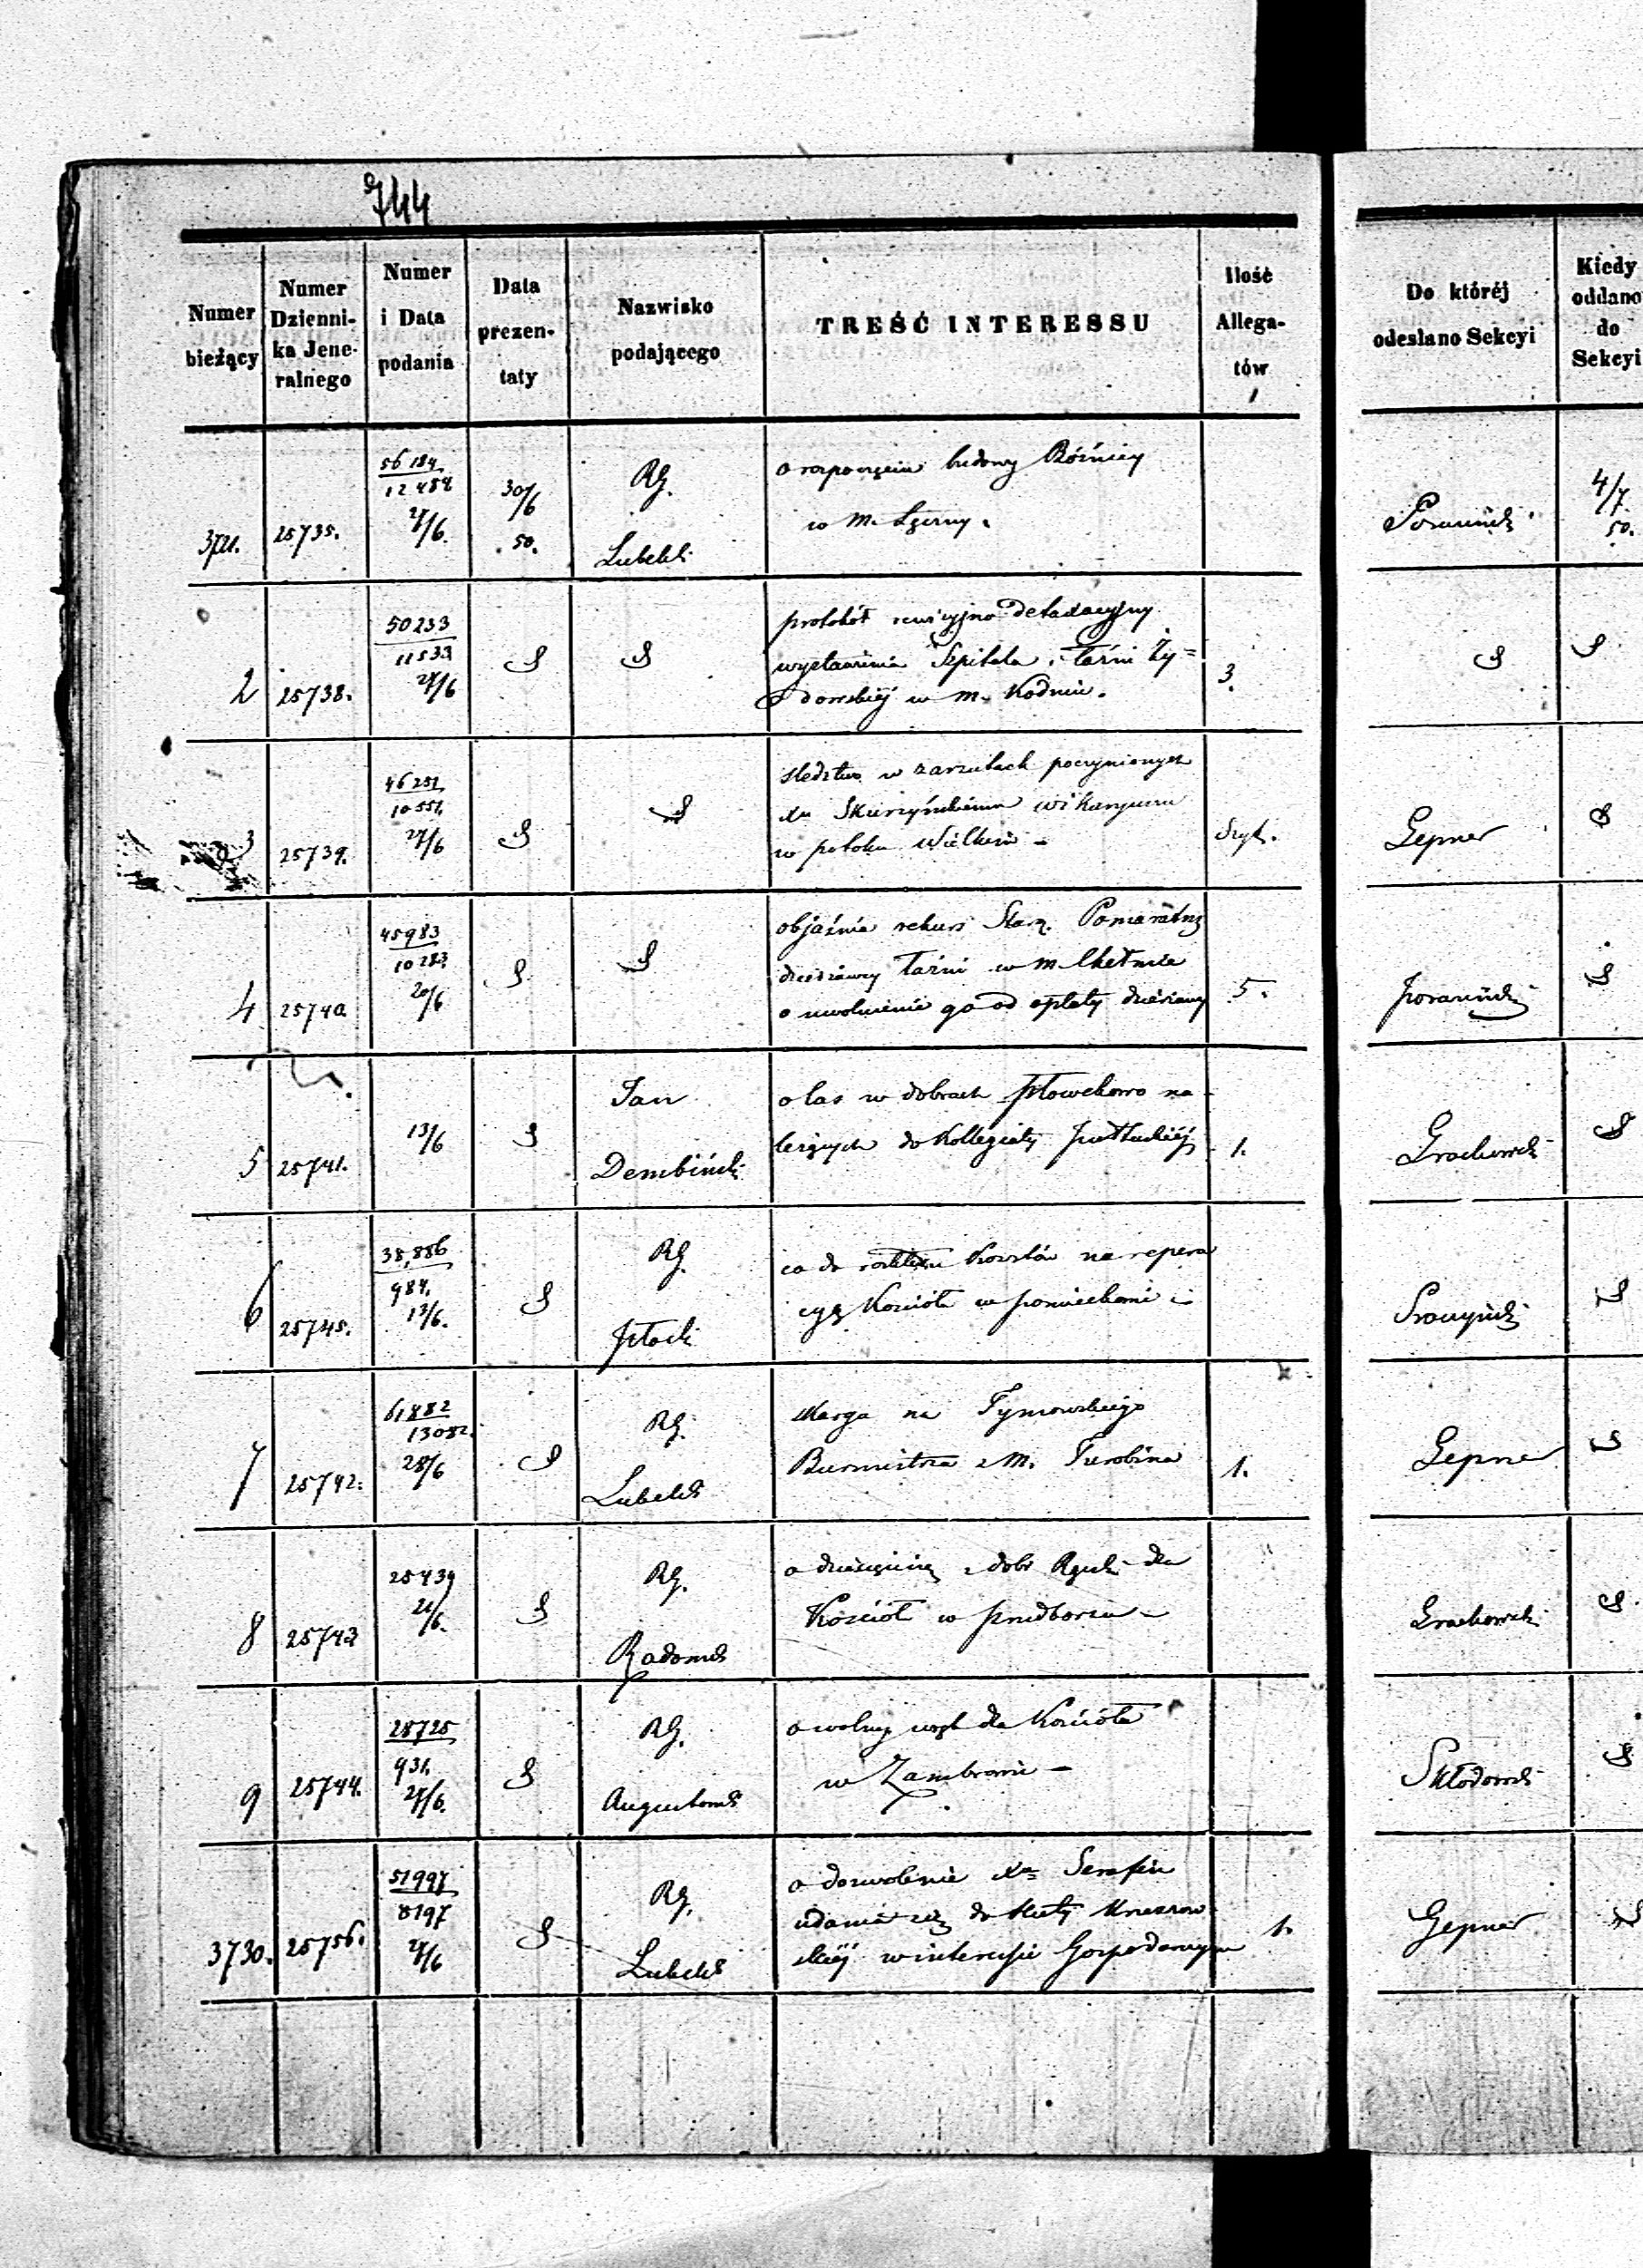 744
Numer bieżący
Numer Dzienni- ka Jene- ralnego
Numer i Data podania
Data prezen- taty
Nazwisko podającego
TREŚĆ INTERESSU
Ilość Allega- tów
Do któréj odesłano Sekcyi
Kiedy oddano do Sekcyi
3721. 25735. 56184 / 12484 27/6. 30/6 50. RG. Lubelski
o rozpoczęciu budowy Bóżnicy
w m.
4/7 50.
2 25738. 50233 / 11533 27/6
protokół rewizyjno detaxacyjny
wystawienia Szpitala i Łaźni Ży=
dowskiéj w m. Kodniu.
3.
3 25739. 46251 / 10551 27/6
śledztwo w zarzutach poczynionych
Xu Skurzyńskiemu wikaryuszu
w potoku Wielkim -
Szyt. Gepner
4 25740 45983 / 10283 20/6
objaśnia rekurs Star.
dzierżawcy Łaźni w m Chełmie
o uwolnienie go od opłaty dzierżawy
5.
5 25741. 13/6 Jan Dembiński
o las w dobrach na-
leżących do Kollegiaty Pułtuskiéj
1. Grabowski
6 25745. 38,886 / 984. 13/6. RG. Płocki
co do rozkładu kosztów na repera
cyą Kościoła w
7 25742. 61882 / 13082. 28/6 RG. Lubelski
skarga na Tymowskiego
Burmistrza z M. Turobina
1. Gepner
8 25743 25439 21/6. RG. Radomski
o dziesięcinę z dóbr dla
Kościoła w Przedborzu -
Grabowski
9 25744. 28725 / 931. 27/6. RG. Augustowski
o wolny wrąb dla Kościoła
w Zambrowie -
Skłodowski
3730. 25756. 51997 / 8197 27/6 RG. Lubelski
o dozwolenie Xu Serafin
udania się do Huty
skiéj w interesie Gospodarczym
1. Gepner